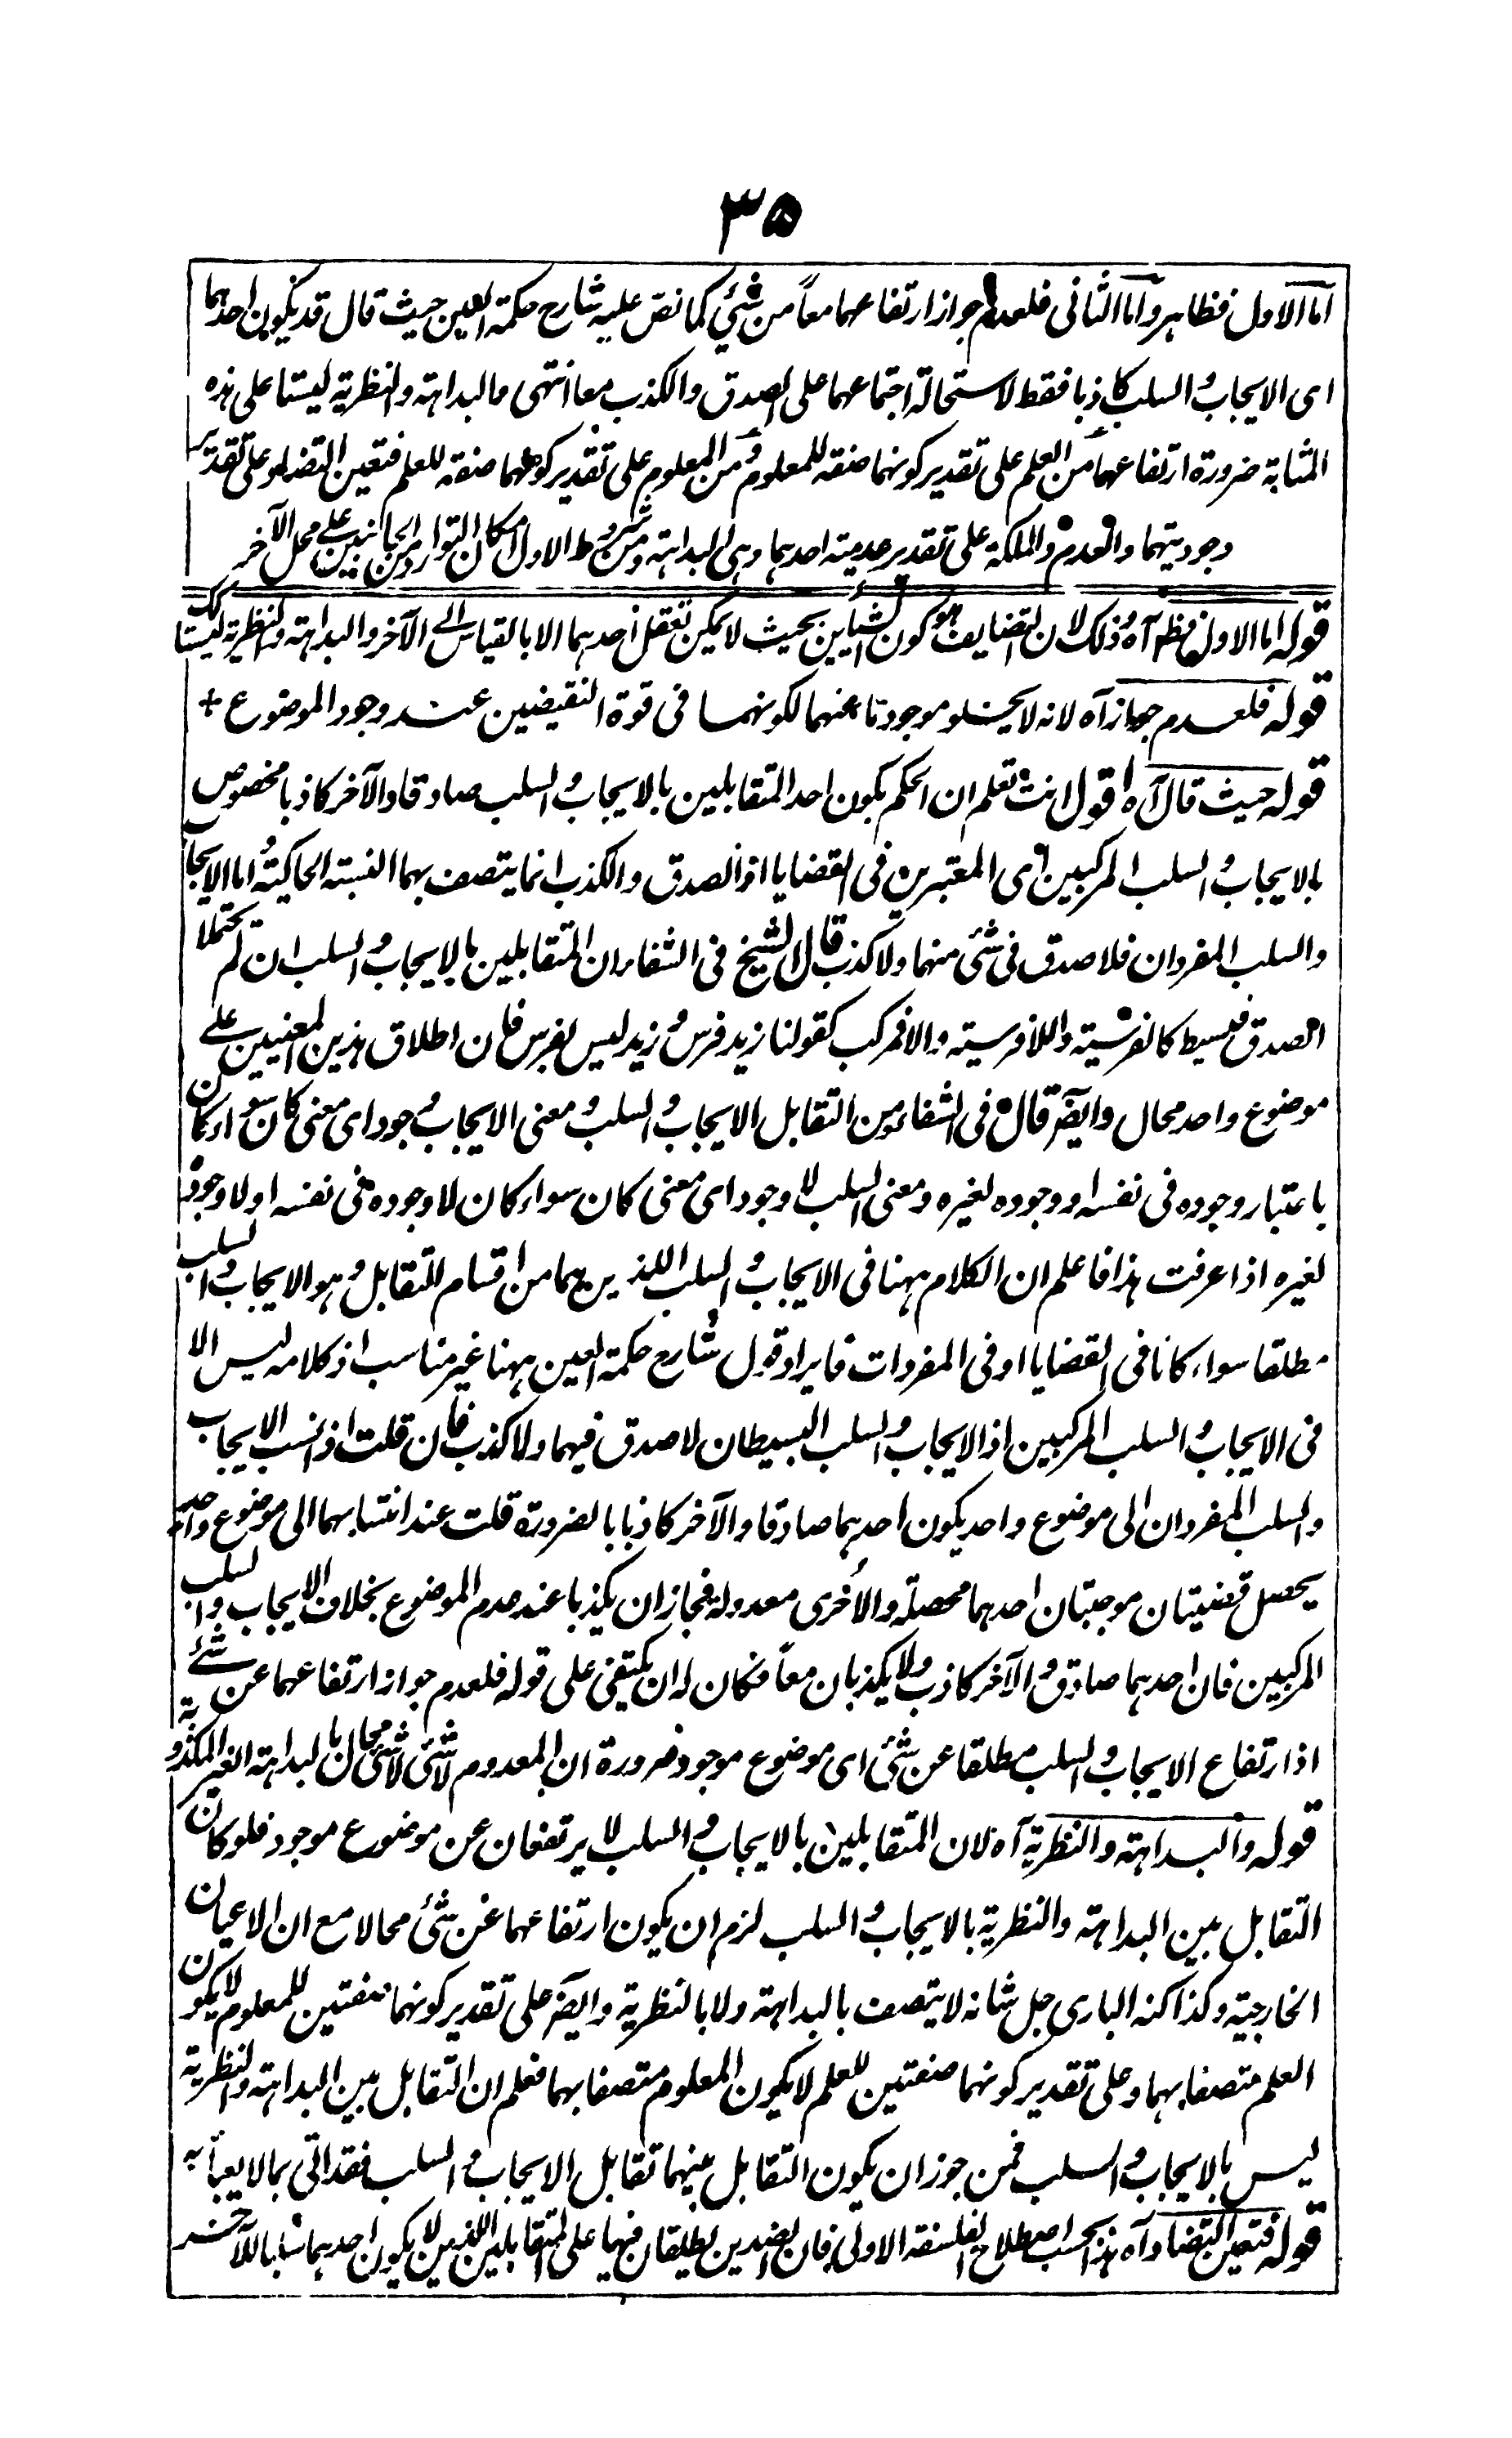 ٣٥
اما الاول فظاهر واما الثانى فلعدم جواز ارتفاعهما معاً من شئ كما نص عليه شارح حكمة العين حيث قال قد يكون احدهما
اى الايجاب والسلب كاذبا فقط لاستحالة اجتماعهما على الصدق والكذب معا انتهى والبداهة والنظرية ليستا على هذه
المثابة ضرورة ارتفاعهما من العلم على تقدير كونهما صفة للمعلوم ومن المعلوم على تقدير كونهما صفة للعلم فتعين التضاد على تقدير
وجوديتهما والعدم والملكة على تقدير عدمية احدهما وهى البداهة ومن شروط الاول امكان التوارد من الجانبين على محل الآخر
قوله اما الاول فظ آه وذلك لان التضايف هو كون الشيئين بحيث لا يمكن تعقل احدهما الا بالقياس الى الآخر والبداهة والنظرية ليستا كك
قوله فلعدم جواز آه لانه لا يخلو موجود ما عنهما لكونهما فى قوة النقيضين عند وجود الموضوع +
قوله حيث قال آه اقول انت تعلم ان الحكم بكون احد المتقابلين بالايجاب والسلب صادقا والآخر كاذبا مخصوص
بالايجاب والسلب المركبين اى المعتبرين فى القضايا اذ الصدق والكذب انما يتصف بهما النسبة الحاكية واما الايجاب
والسلب المفردان فلا صدق فى شئ منهما ولا كذب قال الشيخ فى الشفاء ان المتقابلين بالايجاب والسلب ان لم يحتملا
الصدق فبسيط كالفرسية واللافرسية والا فمركب كقولنا زيد فرس وزيد ليس بفرس فان اطلاق هذين المعنيين على
موضوع واحد محال وايضا قال فى الشفاء من التقابل الايجاب والسلب ومعنى الايجاب وجود اى معنى كان سواء كان
باعتبار وجوده فى نفسه او وجوده لغيره ومعنى السلب لا وجود اى معنى كان سواء كان لا وجوده فى نفسه او لا وجوده
لغيره اذا عرفت هذا فاعلم ان الكلام ههنا فى الايجاب والسلب اللذين هما من اقسام التقابل وهو الايجاب والسلب
مطلقا سواء كانا فى القضايا او فى المفردات فايراد قول شارح حكمة العين ههنا غير مناسب اذ كلامه ليس الا
فى الايجاب والسلب المركبين اذ الايجاب والسلب البسيطان لا صدق فيهما ولا كذب فان قلت اذا نسب الايجاب
والسلب المفردان الى موضوع واحد يكون احدهما صادقا والآخر كاذبا بالضرورة قلت عند انتسابهما الى موضوع واحد
يحصل قضيتان موجبتان احدهما محصلة والاخرى معدولة فجاز ان يكذبا عند عدم الموضوع بخلاف الايجاب والسلب
المركبين فان احدهما صادق والآخر كاذب ولا يكذبان معاً فكان له ان يكتفى على قوله فلعدم جواز ارتفاعهما عن شئ
اذ ارتفاع الايجاب والسلب مطلقا عن شئ اى موضوع موجود ضرورة ان المعدوم لا شئ لا شئ محال بالبداهة الغير المكذوبة
قوله والبداهة والنظرية آه لان المتقابلين بالايجاب والسلب لا يرتفعان عن موضوع موجود فلو كان
التقابل بين البداهة والنظرية بالايجاب والسلب لزم ان يكون ارتفاعهما عن شئ محالا مع ان الاعيان
الخارجية وكذا كنه البارى جل شانه لا يتصف بالبداهة ولا بالنظرية وايضا على تقدير كونهما صفتين للمعلوم لا يكون
العلم متصفا بهما وعلى تقدير كونهما صفتين للعلم لا يكون المعلوم متصفا بهما فعلم ان التقابل بين البداهة والنظرية
ليس بالايجاب والسلب فمن جوز ان يكون التقابل بينهما تقابل الايجاب والسلب فقد اتى بما لا يعبأ به
قوله فتعين التضاد آه هذا بحسب اصطلاح الفلسفة الاولى فان الضدين يطلقان فيها على المتقابلين اللذين لا يكون احدهما سلبا للآخر